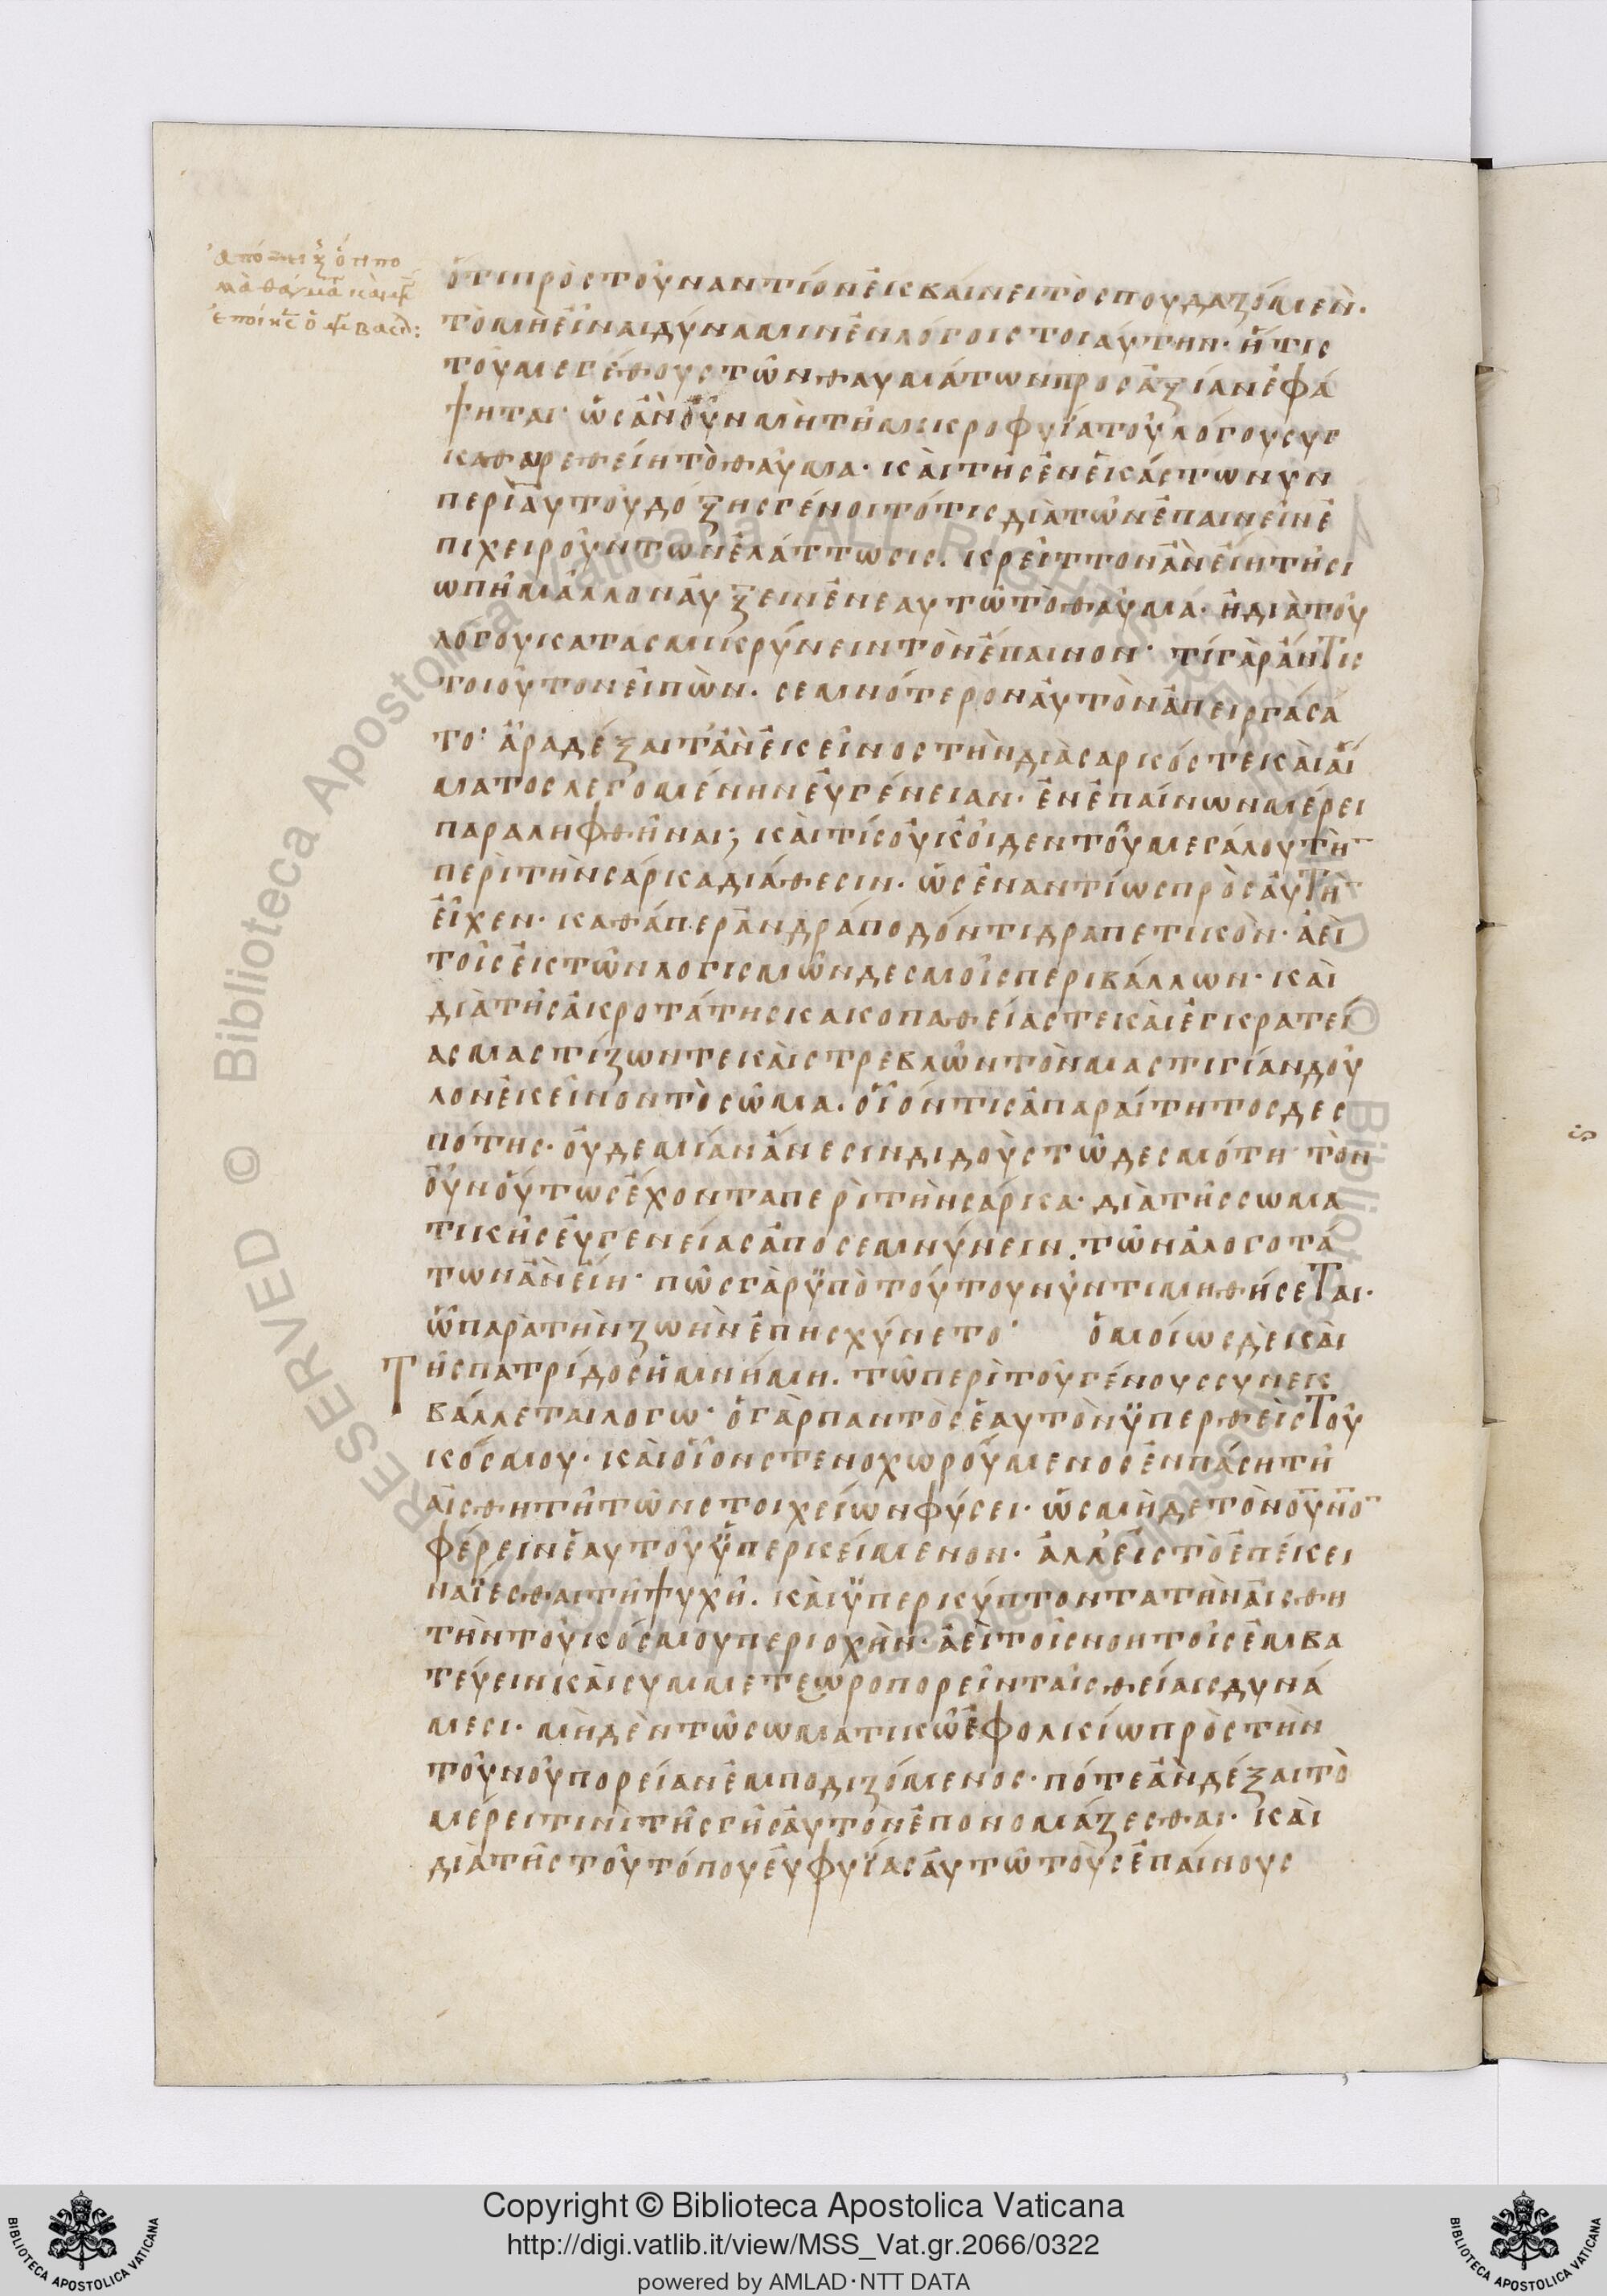 ὅτι πρὸς τοὐναντίον ἐκβαίνει τὸ σπουδαζόμεν.
τὸ μὴ εἶναι δύναμιν ἐν λόγοις τοιαύτην· ἥτις
τοῦ μεγέθους τῶν θαυμάτων προς ἀξίαν ἐφά
ψηται· ὡς ἂν οὖν μὴ τῇ μικροφυΐα τοῦ λόγου συγ
καθαρεθείη τὸ θαῦμα· καὶ τῆς ἐν ἑκάστω νῦν
περὶ αὐτοῦ δόξης γένοιτό τις διὰ τῶν ἐπαινεῖν ἐ
πιχειρούντων ἐλάττωσις. κρεῖττον ἂν εἴη τῇ σι
ωπῇ μᾶλλον αὔξειν ἐν ἑαυτῶ τὸ θαῦμα· ἢ διὰ τοῦ
λόγου κατασμικρύνειν τὸν ἔπαινον· τί γὰρ ἄν τις
τοιοῦτον εἰπὼν. σεμνότερον αὐτὸν ἀπειργάσα
το· ἆρα δέξαιτ' ἂν ἐκεῖνος τὴν διὰ σαρκός τε καὶ αἵ
ματος λεγομένην εὐγένειαν· ἐν ἐπαίνων μέρει
παραληφθῆναι; καὶ τίς οὐκ οἶδεν τοῦ μεγάλου τὴ
περὶ τὴν σάρκα διάθεσιν· ὡς ἐναντίως πρὸς αὐτὴ
εἶχεν· καθάπερ ἀνδράποδόν τι δραπετικὸν· ἀεὶ
τοῖς ἐκ τῶν λογισμῶν δεσμοῖς περιβάλλων· καὶ
διὰ τῆς ἀκροτάτης κακοπαθείας τε καὶ ἐγκρατεί
ας μαστίζων τε καὶ στρεβλῶν τὸν μαστιγίαν δοῦ
λον ἐκεῖνον τὸ σῶμα. οἷόν τις ἀπαραίτητος δες
πότης· οὐδεμίαν ἄνεσιν διδοὺς τῶ δεσμότη· τὸν
οὖν οὕτως ἔχοντα περὶ τὴν σάρκα· διὰ τῆς σωμα
τικῆς εὐγενείας ἀποσεμνύνειν. τῶν ἀλογοτά
των ἂν εἴη· πῶς γὰρ ὑπὸ τούτου νῦν τιμηθήσεται·
ὧ παρὰ τὴν ζωὴν ἐπησχύνετο· ὁμοίως δὲ καὶ
Τῆς πατρίδος ἡ μνήμη. τῶ περὶ τοῦ γένους συνεκ
βάλλεται λόγω· ὁ γὰρ παντὸς ἑαυτὸν ὑπερθεὶς τοῦ
κόσμου· καὶ οἷον στενοχωρούμενος ἐν πάση τῇ
αἰσθητῇ τῶν στοιχείων φύσει· ὡς μὴδε τὸν οὐνο
φέρειν ἑαυτοῦ ὑπερκείμενον· ἀλλ' εἰς τὸ ἐπέκει
να ΐεσθαι τῇ ψυχῇ. καὶ ὑπερκύπτοντα τὴν αἰσθη
τὴν τοῦ κόσμου περιοχὴν· ἀεὶ τοῖς νοητοῖς ἐμβα
τεύειν καὶ συμμετεωροπορεῖν ταῖς θείαις δυνά
μεσι· μηδὲν τῶ σωματικῶ ἐφολκίω πρὸς τὴν
τοῦ νοῦ πορείαν ἐμποδιζόμενος· πότε ἂν δέξαιτο
μέρει τινὶ τῆς γῆς αὐτὸν ἐπονομάζεσθαι· καὶ
διὰ τῆς τοῦ τόπου εὐφυΐας αὐτῶ τοὺς ἐπαίνους
Copyright © Biblioteca Apostolica Vaticana
http://digi.vatlib.it/view/MSS_Vat.gr.2066/0322
powered by AMLAD·NTT DATA
BIBLIOTECA APOSTOLICA VATICANA
BIBLIOTECA APOSTOLICA VATICANA